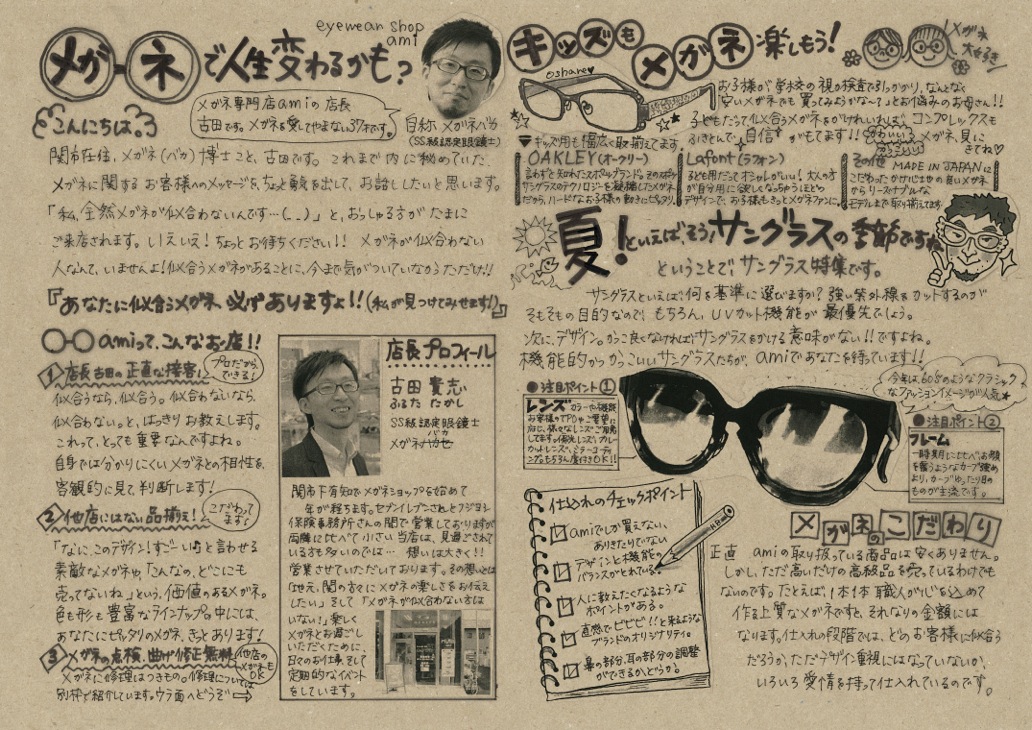 メガネで人生変わるかも？
eyewear shop
ami
メガネ専門店amiの店長
古田です。メガネを愛してやまない37才です。
自称 メガネバカ
(SS級認定眼鏡士)
こんにちは。
関市在住，メガネ(バカ)博士こと、古田です。これまで内に秘めていた、
メガネに関するお客様へのメッセージを、ちょっと勇気を出して、お話ししたいと思います。
「私、全然メガネが似合わないんです…(-_-)」と、おっしゃる方がたまに
ご来店されます。いえいえ！ちょっとお待ちください！！ メガネが似合わない
人なんて、いませんよ！似合うメガネがあることに、今まで気がついていなかっただけ！！
『あなたに似合うメガネ、必ずありますよ！！(私が見つけてみせます！)』
amiって、こんなお店！！
1 店長古田の正直な接客！
プロだから、
できる！
似合うなら、似合う。似合わないなら、
似合わない。と、はっきりお教えします。
これって、とっても重要なんですよね。
自身では分かりにくいメガネとの相性を、
客観的に見て、判断します！
2 他店にはない品揃え！
こだわって
ます！
「なに、このデザイン！すごーい♪」と言わせる
素敵なメガネや、「こんなの、どこにも
売ってないね」という、価値のあるメガネ。
色も形も豊富なラインナップの中には、
あなたにピッタリのメガネ、きっとあります！
3 メガネの点検、曲げ修正無料
他店の
メガネもOK
メガネに修理はつきもの。修理については
別枠で紹介しています。ウラ面へどうぞ⇨
店長プロフィール
古田 貴志
ふるた たかし
SS級認定眼鏡士
メガネバカ
関市下有知でメガネショップを始めて
年が経ちます。セブンイレブンさんとフジヨシ
保険事務所さんの間で営業しておりますが
両隣に比べて小さい当店は、見過ごされて
いる方も多いのでは… 想いは大きく！！
営業させていただいております。その想いとは
「地元、関の方々にメガネの楽しさをお伝え
したい」そして「メガネが似合わない方は
いない！」楽しく
メガネとお過ごし
いただくために、
日々のお仕事、そして
定期的なイベント
をしています。
キッズもメガネ楽しもう！
メガネ
大好き
oshare♥
お子様が学校の視力検査で引っかかり、なんとなく
安いメガネでも買ってみようかな〜？とお悩みのお母さん！！
子どもだって似合うメガネをかけれいれば、コンプレックスも
ふきとんで、自信がもてます！！
かわいい
かっこいい
メガネ、見に
きてね♥
▼キッズ用も幅広く取揃えてます。
OAKLEY(オークリー)
言わずと知れたスポーツブランド。そのスポーツ
サングラスのテクノロジーを凝縮したメガネ
だから、ハードなお子様の動きにピッタリ。
Lafont(ラフォン)
子ども用だってオシャレがいい！大人の方
が自分用に欲しくなっちゃうほどの
デザインで、お子様もきっとメガネファンに。
その他 MADE IN JAPANに
こだわったかけごこちの良いメガネ
からリーズナブルな
モデルまで取り揃えてます
夏！といえば、そう！サングラスの季節ですね
ということで、サングラス特集です。
サングラスといえば、何を基準に選びますか？強い紫外線をカットするのが
そもそもの目的なので、もちろん、UVカット機能が最優先でしょう。
次に、デザイン。かっこ良くなければサングラスをかける意味がない！！ですよね。
機能的かつかっこいいサングラスたちが、amiであなたを待っています！！
今年は、60'sのようなクラシック
なファッションイメージが人気★
●注目ポイント①
レンズ
●注目ポイント②
フレーム
一時期に比べ、お顔
を覆うようなカーブ強め
より、カーブゆったり目の
ものが主流です。
仕入れのチェックポイント
amiでしか買えない、
ありきたりでない
デザインと機能の
バランスがとれている。
人に教えたくなるような
ポイントがある。
直感でビビビ！！と来るような
ブランドのオリジナリティ。
鼻の部分、耳の部分の調整
ができるか、どうか。
メガネのこだわり
正直 amiの取り扱っている商品は安くありません。
しかし、ただ高いだけの高級品を売っているわけでも
ないのです。たとえば、1本1本職人が心を込めて
作る上質なメガネですと、それなりの金額には
なります。仕入れの段階では、どのお客様に似合う
だろうか、ただデザイン重視にはなっていないか、
いろいろ愛情を持って仕入れているのです。